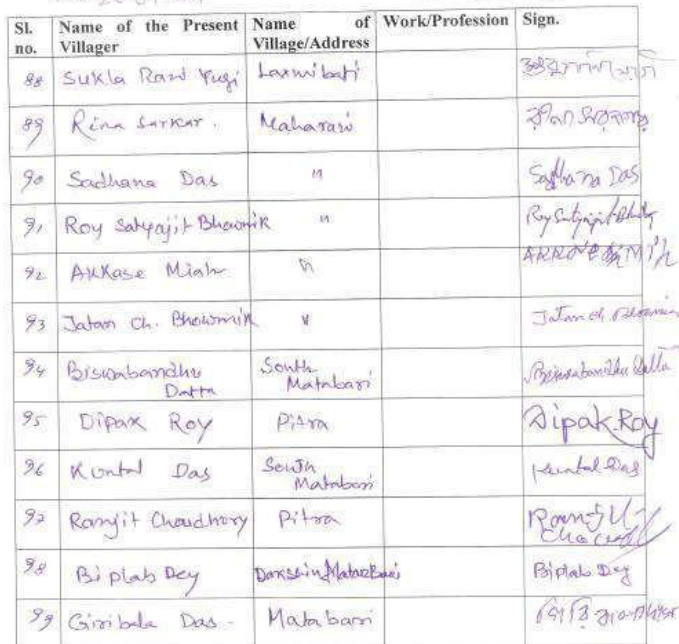 Sl. no. Name of the Present Villager Name of Village/Address Work/Profession Sign.
88 Sukla Rani Yugi Laxmibati
89 Rina Sarkar. Maharani
90 Sadhana Das " Sadhana Das
91 Roy Satyajit Bhowmik "
92 Akkase Miah "
93 Jatan Ch. Bhowmik " Jatan ch. Bhowmik
94 Biswabandhu Datta South Matabari Biswabandhu Datta
95 Dipak Roy Pitra Dipak Roy
96 Kuntal Das South Matabari Kuntal Das
97 Ranjit Choudhory Pitra
98 Biplab Dey Dakshin Matabari Biplab Dey
99 Giribala Das. Matabari